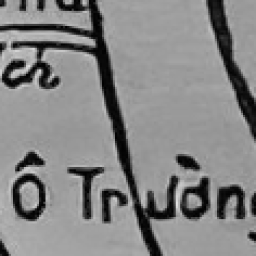 ch
Ô Trường